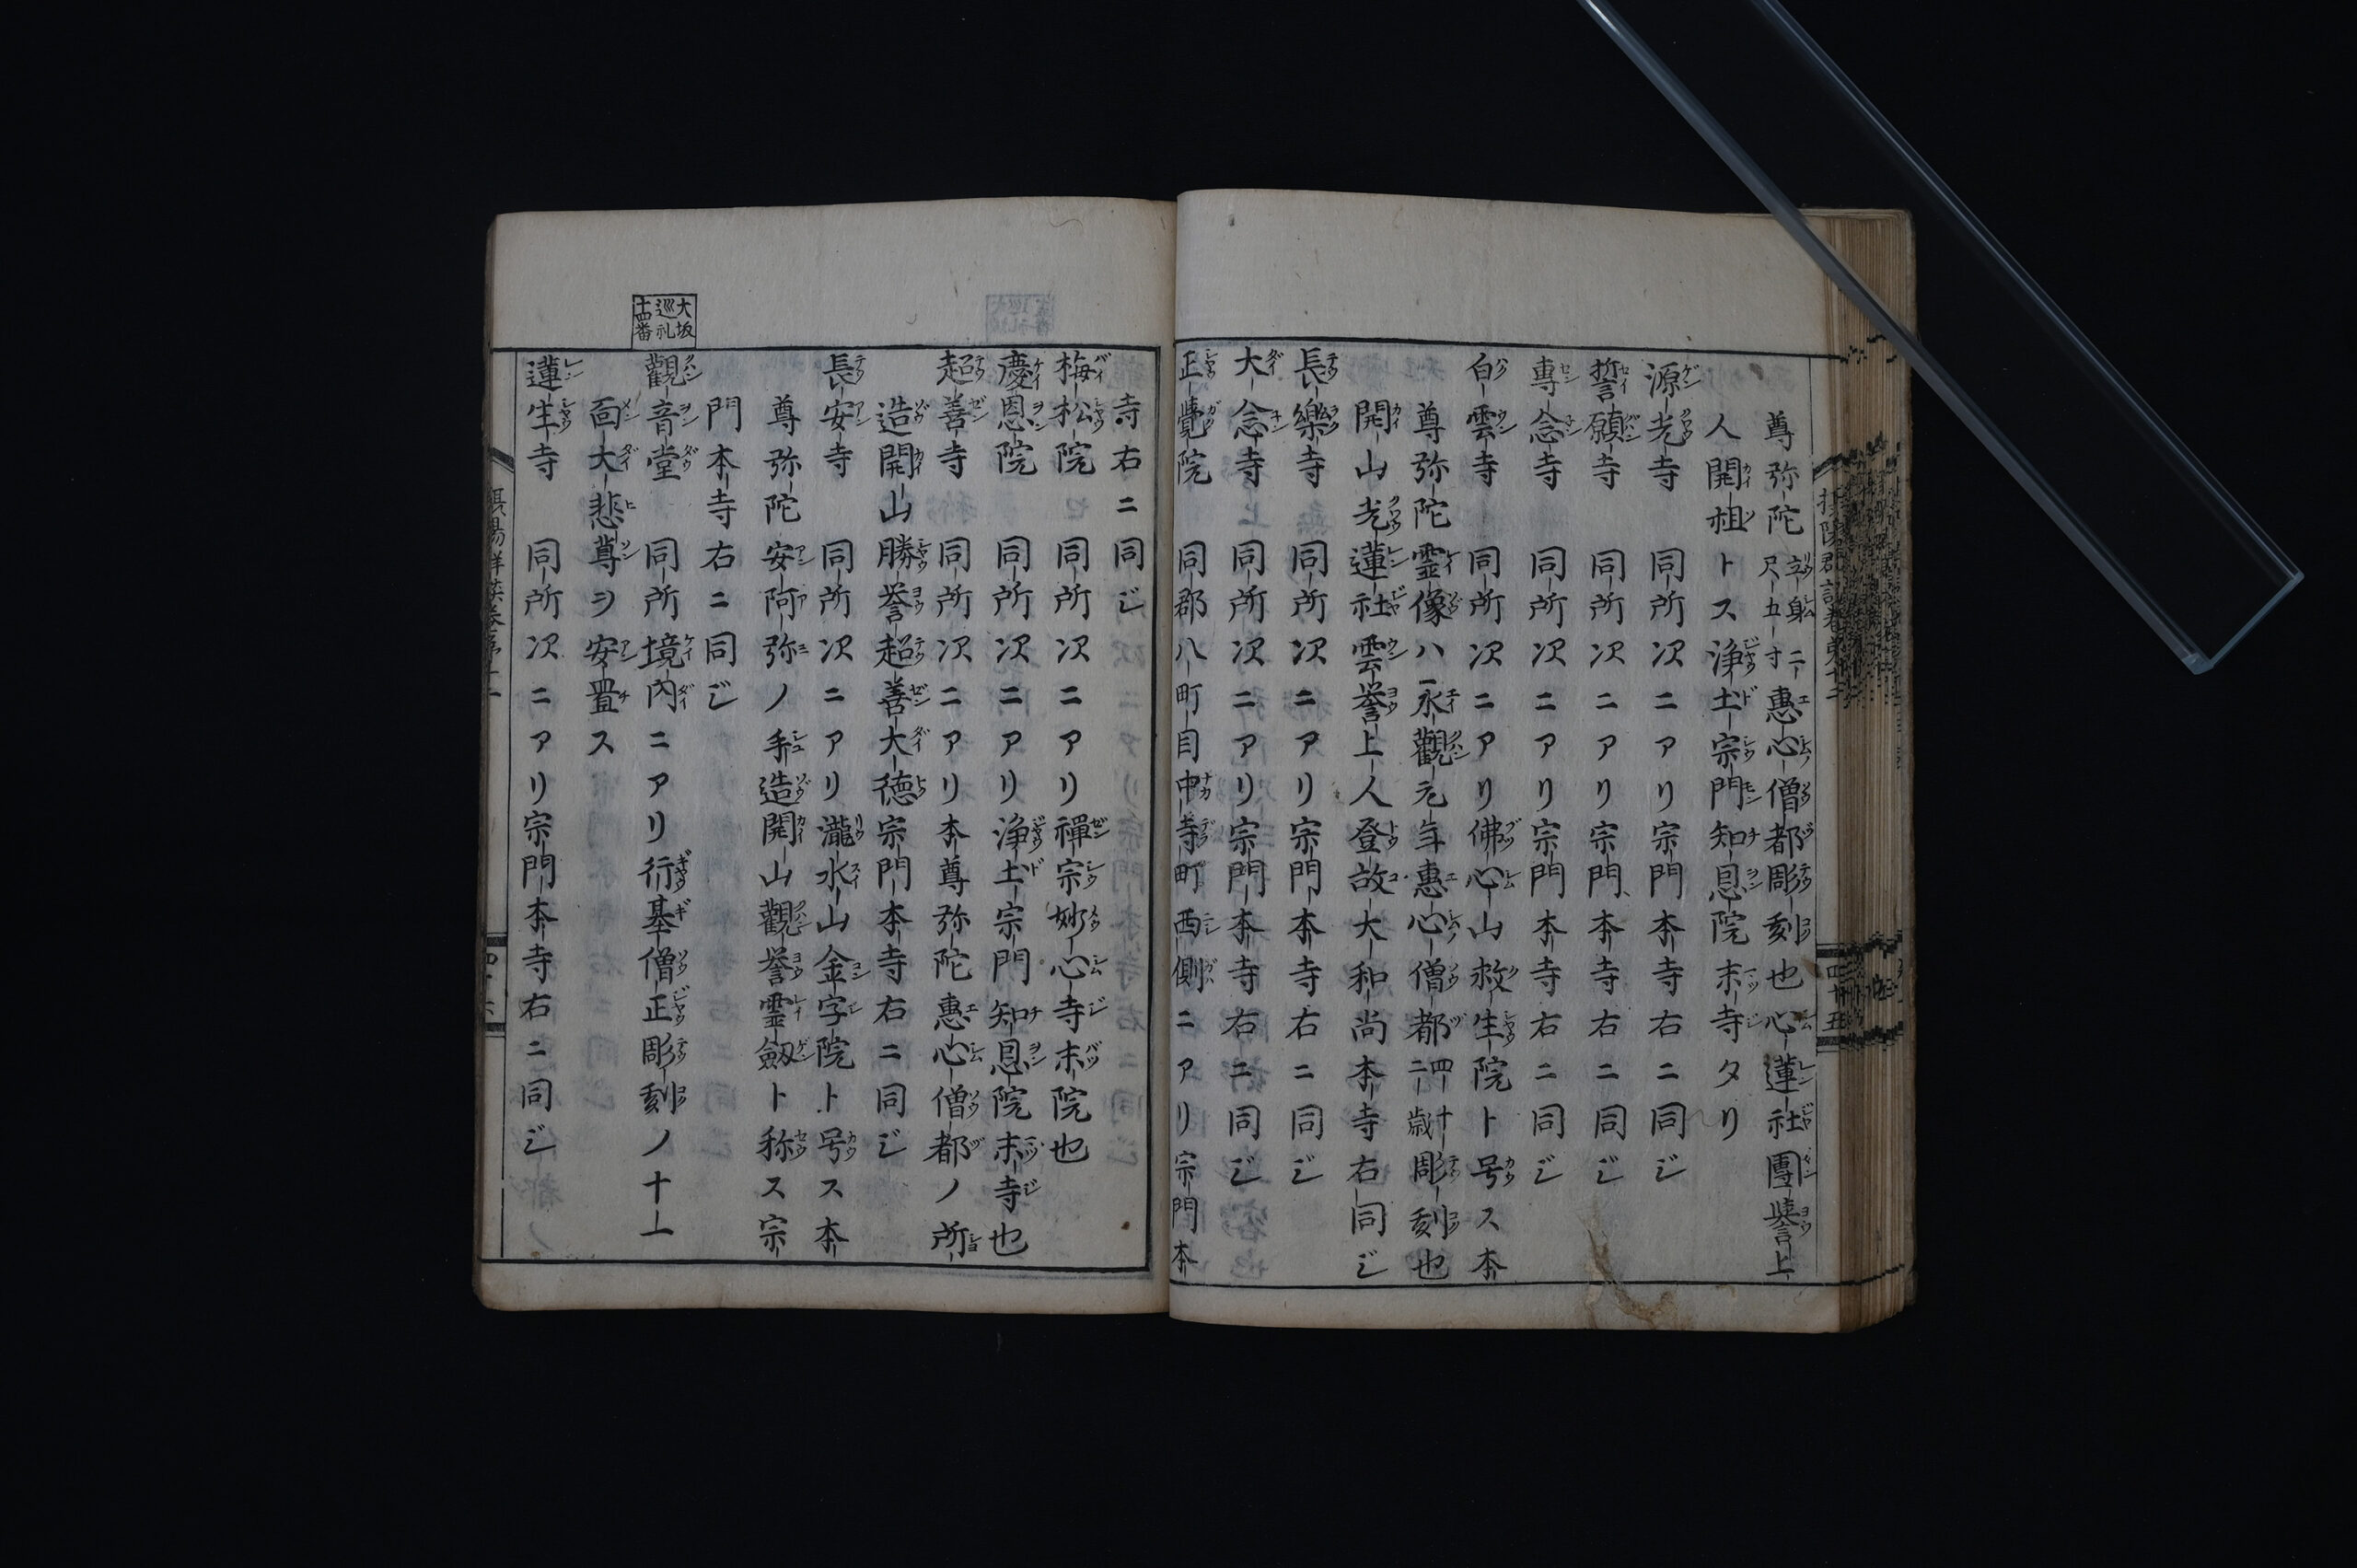 尊弥陀立身二尺五寸惠心僧都彫刻也心蓮社團譽上
人開祖トス浄土宗門知恩院末寺タリ
源光寺 同所次ニアリ宗門本寺右ニ同ジ
誓願寺 同所次ニアリ宗門本寺右ニ同ジ
專念寺 同所次ニアリ宗門本寺右ニ同ジ
白雲寺 同所次ニアリ佛心山救生院ト号ス本
尊弥陀霊像ハ永觀元年惠心僧都四十二歳彫刻也
開山光蓮社雲誉上人登故大和尚本寺右同ジ
長樂寺 同所次ニアリ宗門本寺右ニ同ジ
大念寺 同所次ニアリ宗門本寺右ニ同ジ
正覺院 同郡八町目中寺町西側ニアリ宗門本
寺右ニ同ジ
梅松院 同所次ニアリ禪宗妙心寺末院也
慶恩院 同所次ニアリ浄土宗門知恩院末寺也
超善寺 同所次ニアリ本尊弥陀惠心僧都ノ所
造開山勝誉超善大徳宗門本寺右ニ同ジ
長安寺 同所次ニアリ瀧水山金字院ト号ス本
尊弥陀安阿弥ノ手造開山觀誉霊劔ト称ス宗
門本寺右ニ同ジ
大坂巡礼十四番
觀音堂 同所境内ニアリ行基僧正彫刻ノ十一
面大悲尊ヲ安置ス
蓮生寺 同所次ニアリ宗門本寺右ニ同ジ